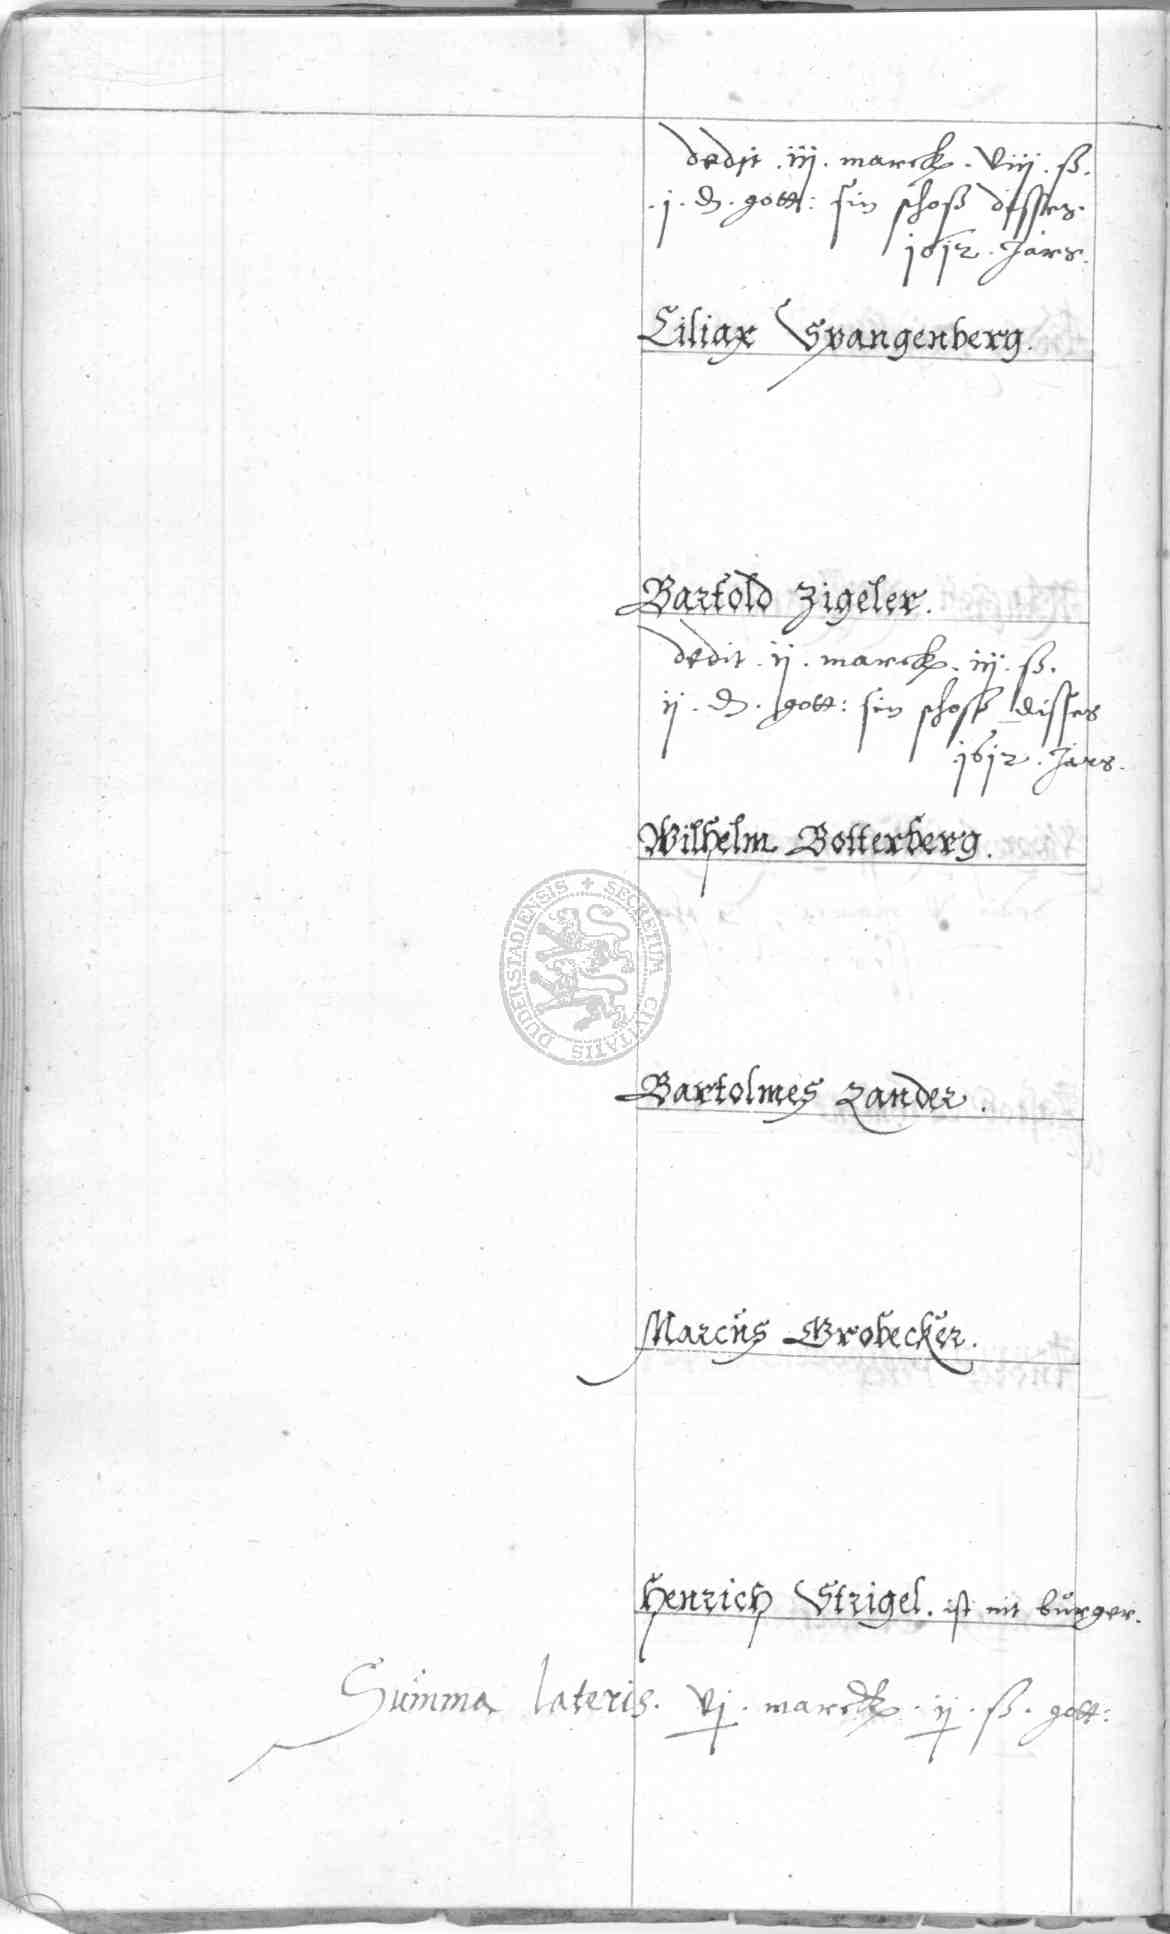 dedit . iij . marck . viij . ß .
. j . d . gott : sin schoß disses .
1612 . Jars .
Ciliax Spangenberg .
Bartold Zigeler .
dedit . ij . marck . iij . ß .
ij . d . gott : sin schoß disses
1612 . Jars .
Wilhelm Botterberg .
DUDERSTADIENSIS + SECRETUM CIVITATIS
Bartolmes Zander .
Marcus Grobecker .
Henrich Strigel . ist nit burger .
Summa lateris . vj . marck . ij . ß . gott :